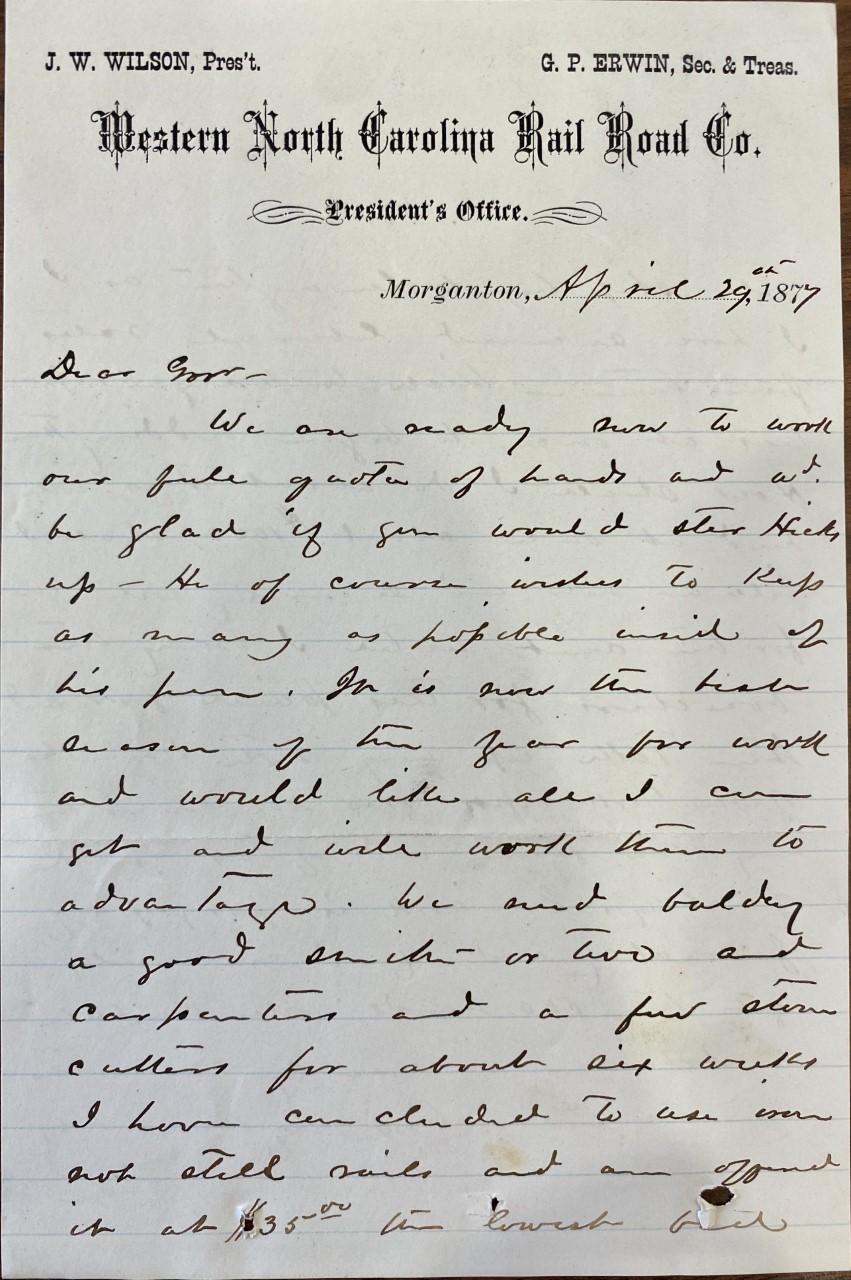 J. W. WILSON, Pres't.
G. P. ERWIN, Sec. & Treas.
Western North Carolina Rail Road Co.
President's Office.
Morganton, April 29th, 1877
Dear Govr—
We are ready now to work
our full quota of hands and wd.
be glad if you would stir Hicks
up — He of course wishes to Keep
as many as possible inside of
his pen. It is now the best
season of the year for work
and would like all I can
get and will work them to
advantage. We need badly
a good smith or two and
carpenters and a few stone
cutters for about six weeks
I have concluded to use iron
not steel rails and am offered
it at $35.00 the lowest bid